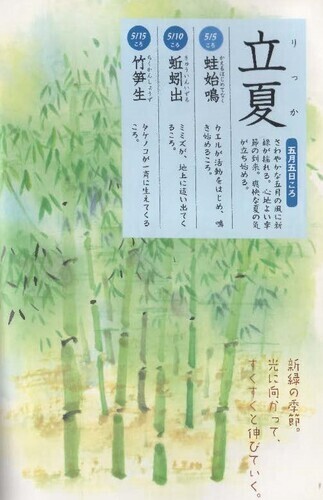 りっか
立夏
五月五日ころ
さわやかな五月の風に新
緑が揺れる、心地よい季
節の到来。爽快な夏の気
が立ち始める。
5/5
ころ
かえるはじめてなく
蛙始鳴
カエルが活動をはじめ、鳴
き始めるころ。
5/10
ころ
きゅういんいずる
蚯蚓出
ミミズが、地上に這い出てく
るころ。
5/15
ころ
ちくかんしょうず
竹笋生
タケノコが一斉に生えてくる
ころ。
新緑の季節。
光に向かって、
すくすくと伸びていく。